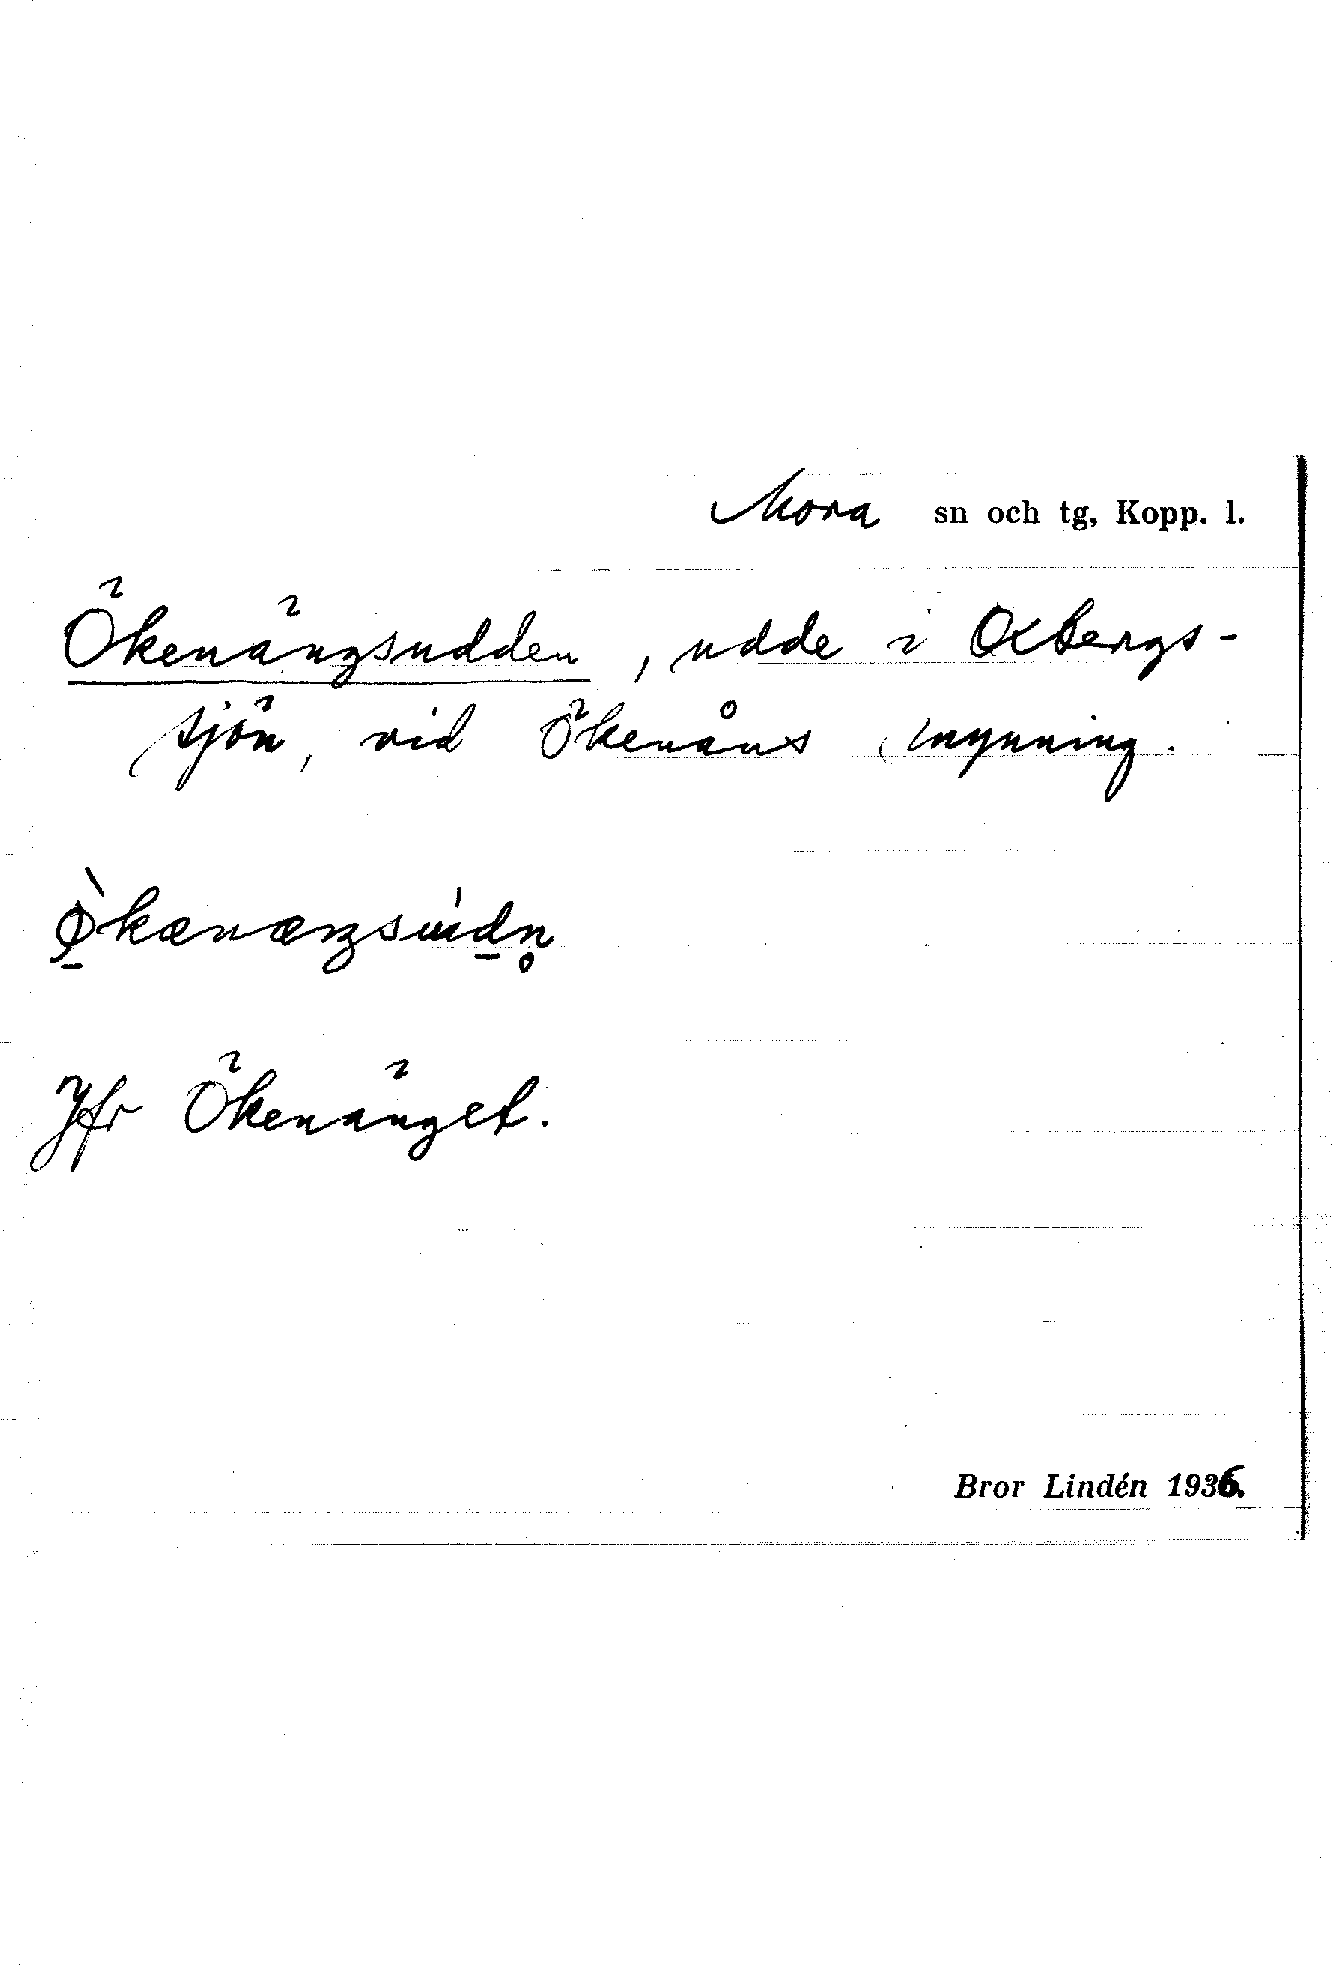 Mora sn och tg, Kopp. l.
Ökenängsudden, udde i Oxbergs-
sjön, vid Ökenåns mynning.
Jfr Ökenänget.
Bror Lindén 1936.